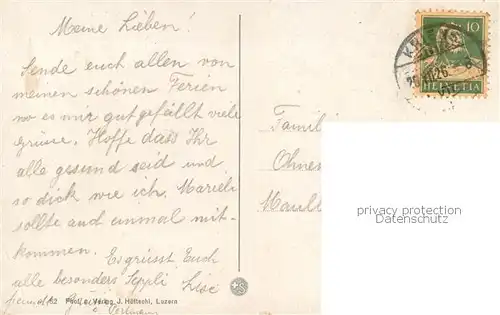 Meine Lieben!
Sende euch allen von
meinen schönen Ferien
wo es mir gut gefällt viele
grüsse. Hoffe dass Ihr
alle gesund seid und
so dick wie ich. Marieli
sollte auch einmal mit-
kommen. Es grüsst Euch
alle besonders Seppli Lisé
10
HELVETIA
Famil
Ohne
Maull
privacy protection
Datenschutz
62 Phot. u. Verlag J. Hüttschi, Luzern